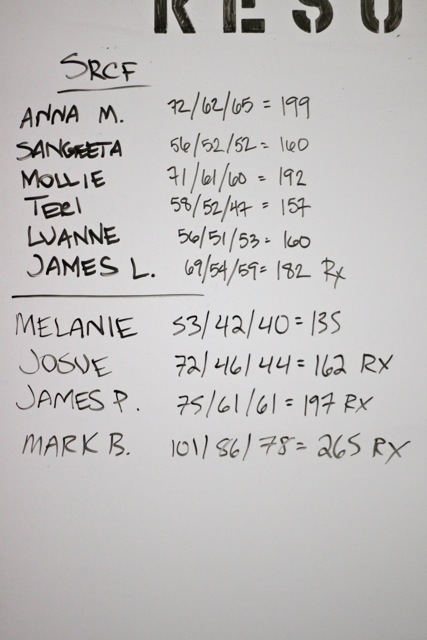 RESU
SRCF
ANNA M. 72/62/65 = 199
SANGEETA 56/52/52 = 160
MOLLIE 71/61/60 = 192
TERI 58/52/47 = 157
LUANNE 56/51/53 = 160
JAMES L. 69/54/59 = 182 Rx
MELANIE 53/42/40 = 135
JOSUE 72/46/44 = 162 RX
JAMES P. 75/61/61 = 197 RX
MARK B. 101/86/78 = 265 RX